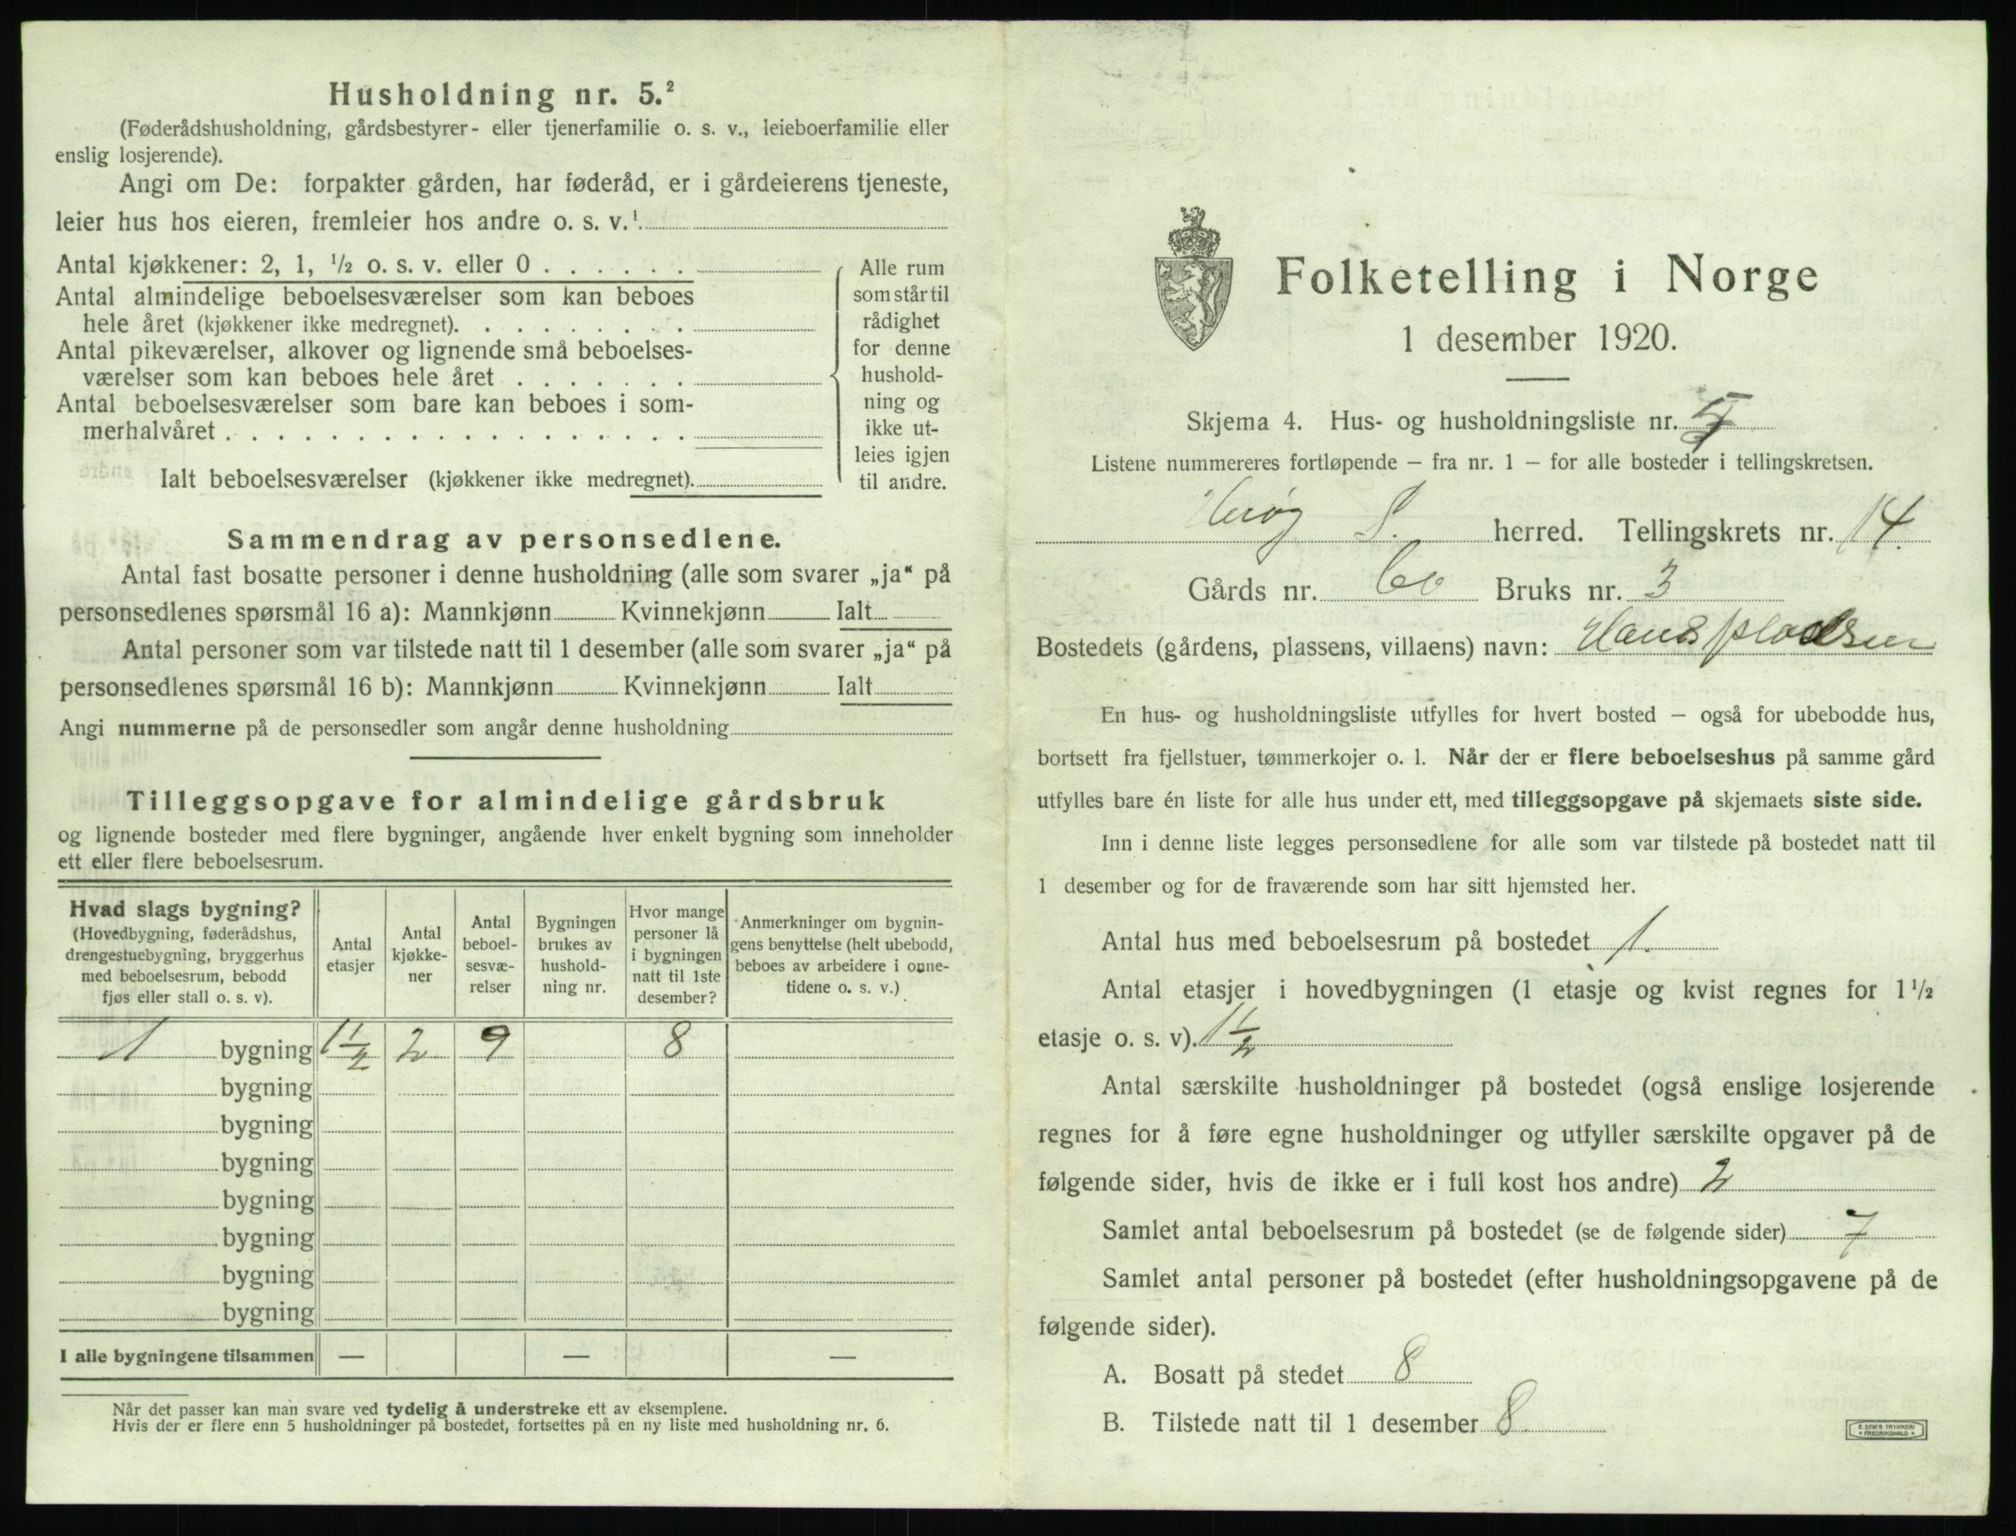 Husholdning nr. 5.²
(Føderådshusholdning, gårdsbestyrer- eller tjenerfamilie o. s. v., leieboerfamilie eller
enslig losjerende).
Angi om De: forpakter gården, har føderåd, er i gårdeierens tjeneste,
leier hus hos eieren, fremleier hos andre o. s. v.¹
Antal kjøkkener: 2, 1, ½ o. s. v. eller 0 . . . . . .
Antal almindelige beboelsesværelser som kan beboes
hele året (kjøkkener ikke medregnet). . . . . . . . .
Antal pikeværelser, alkover og lignende små beboelses-
værelser som kan beboes hele året . . . . . . .
Antal beboelsesværelser som bare kan beboes i som-
merhalvåret . . . . . . . . . . . . . . . . . .
Ialt beboelsesværelser (kjøkkener ikke medregnet).
Alle rum
som står til
rådighet
for denne
hushold-
ning og
ikke ut-
leies igjen
til andre.
Sammendrag av personsedlene.
Antal fast bosatte personer i denne husholdning (alle som svarer „ja“ på
personsedlenes spørsmål 16 a): Mannkjønn Kvinnekjønn Ialt
Antal personer som var tilstede natt til 1 desember (alle som svarer „ja“ på
personsedlenes spørsmål 16 b): Mannkjønn Kvinnekjønn Ialt
Angi nummerne på de personsedler som angår denne husholdning
Tilleggsopgave for almindelige gårdsbruk
og lignende bosteder med flere bygninger, angående hver enkelt bygning som inneholder
ett eller flere beboelsesrum.
Hvad slags bygning?
(Hovedbygning, føderådshus,
drengestuebygning, bryggerhus
med beboelsesrum, bebodd
fjøs eller stall o. s. v).
Antal
etasjer
Antal
kjøkke-
ner
Antal
beboel-
sesvæ-
relser
Bygningen
brukes av
hushold-
ning nr.
Hvor mange
personer lå
i bygningen
natt til 1ste
desember?
Anmerkninger om bygnin-
gens benyttelse (helt ubebodd,
beboes av arbeidere i onne-
tidene o. s. v.)
1 bygning 1½ 2 9 8
bygning
bygning
bygning
bygning
bygning
bygning
bygning
I alle bygningene tilsammen — — —
Når det passer kan man svare ved tydelig å understreke ett av eksemplene.
Hvis der er flere enn 5 husholdninger på bostedet, fortsettes på en ny liste med husholdning nr. 6.
Folketelling i Norge
1 desember 1920.
Skjema 4. Hus- og husholdningsliste nr. 5
Listene nummereres fortløpende — fra nr. 1 — for alle bosteder i tellingskretsen.
Herøy S. herred. Tellingskrets nr. 14.
Gårds nr. 60 Bruks nr. 3
Bostedets (gårdens, plassens, villaens) navn: Hanspladsen
En hus- og husholdningsliste utfylles for hvert bosted — også for ubebodde hus,
bortsett fra fjellstuer, tømmerkojer o. l. Når der er flere beboelseshus på samme gård
utfylles bare én liste for alle hus under ett, med tilleggsopgave på skjemaets siste side.
Inn i denne liste legges personsedlene for alle som var tilstede på bostedet natt til
1 desember og for de fraværende som har sitt hjemsted her.
Antal hus med beboelsesrum på bostedet 1.
Antal etasjer i hovedbygningen (1 etasje og kvist regnes for 1½
etasje o. s. v). 1½
Antal særskilte husholdninger på bostedet (også enslige losjerende
regnes for å føre egne husholdninger og utfyller særskilte opgaver på de
følgende sider, hvis de ikke er i full kost hos andre) 2
Samlet antal beboelsesrum på bostedet (se de følgende sider) 7
Samlet antal personer på bostedet (efter husholdningsopgavene på de
følgende sider).
A. Bosatt på stedet 8
B. Tilstede natt til 1 desember 8
E. SEM'S TRYKKERI
FREDRIKSHALD